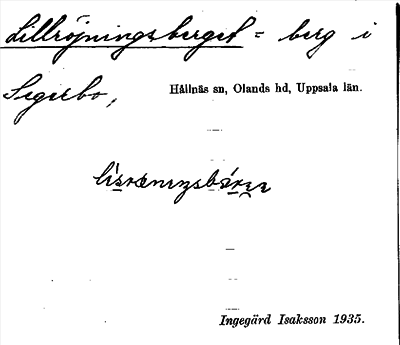 Lillröjningsberget = berg i
Sigerbo,
Hållnäs sn, Olands hd, Uppsala län.
Ingegärd Isaksson 1935.